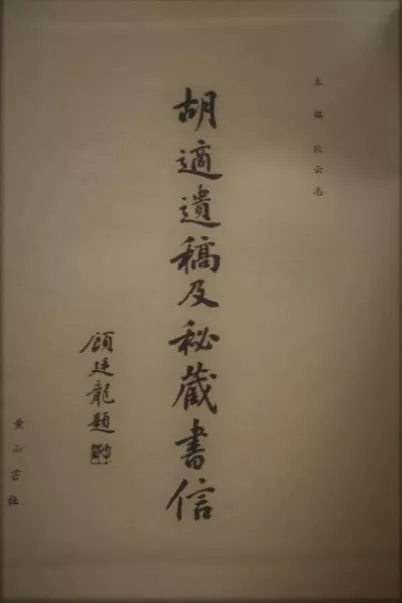 主编 耿云志
胡適遺稿及秘藏書信
顧廷龍題
黄山書社